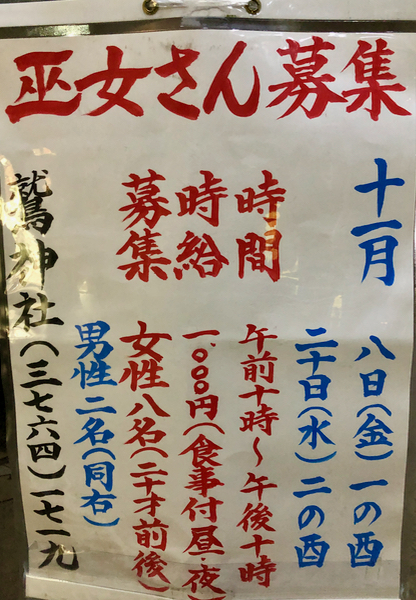 巫女さん募集
十一月 八日(金)一の酉
二十日(水)二の酉
時間 午前十時～午後十時
時給 一、〇〇〇円(食事付昼、夜)
募集 女性八名(二十才前後)
男性二名(同右)
鷲神社(三七六四)一七一九